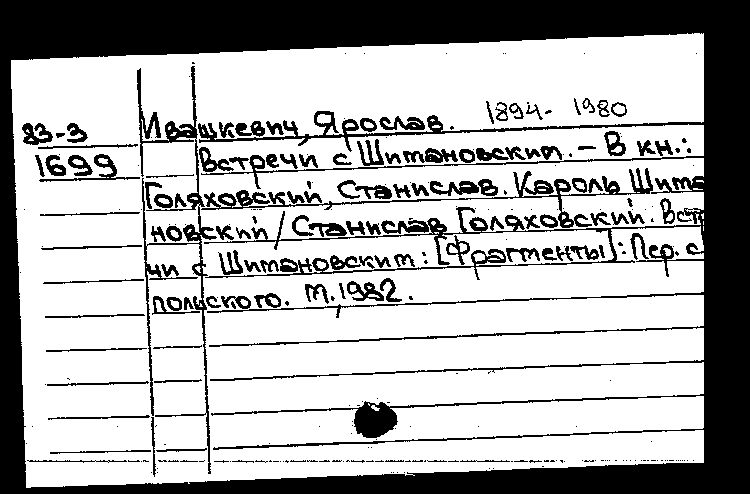 83-3 Ивашкевич, Ярослав. 1894-1980
1699 Встречи с Шимановским. – В кн.:
Голяховский, Станислав. Кароль Шима
новский / Станислав Голяховский. Встр
чи с Шимановским: [Фрагменты]: Пер. с
польского. М., 1982.